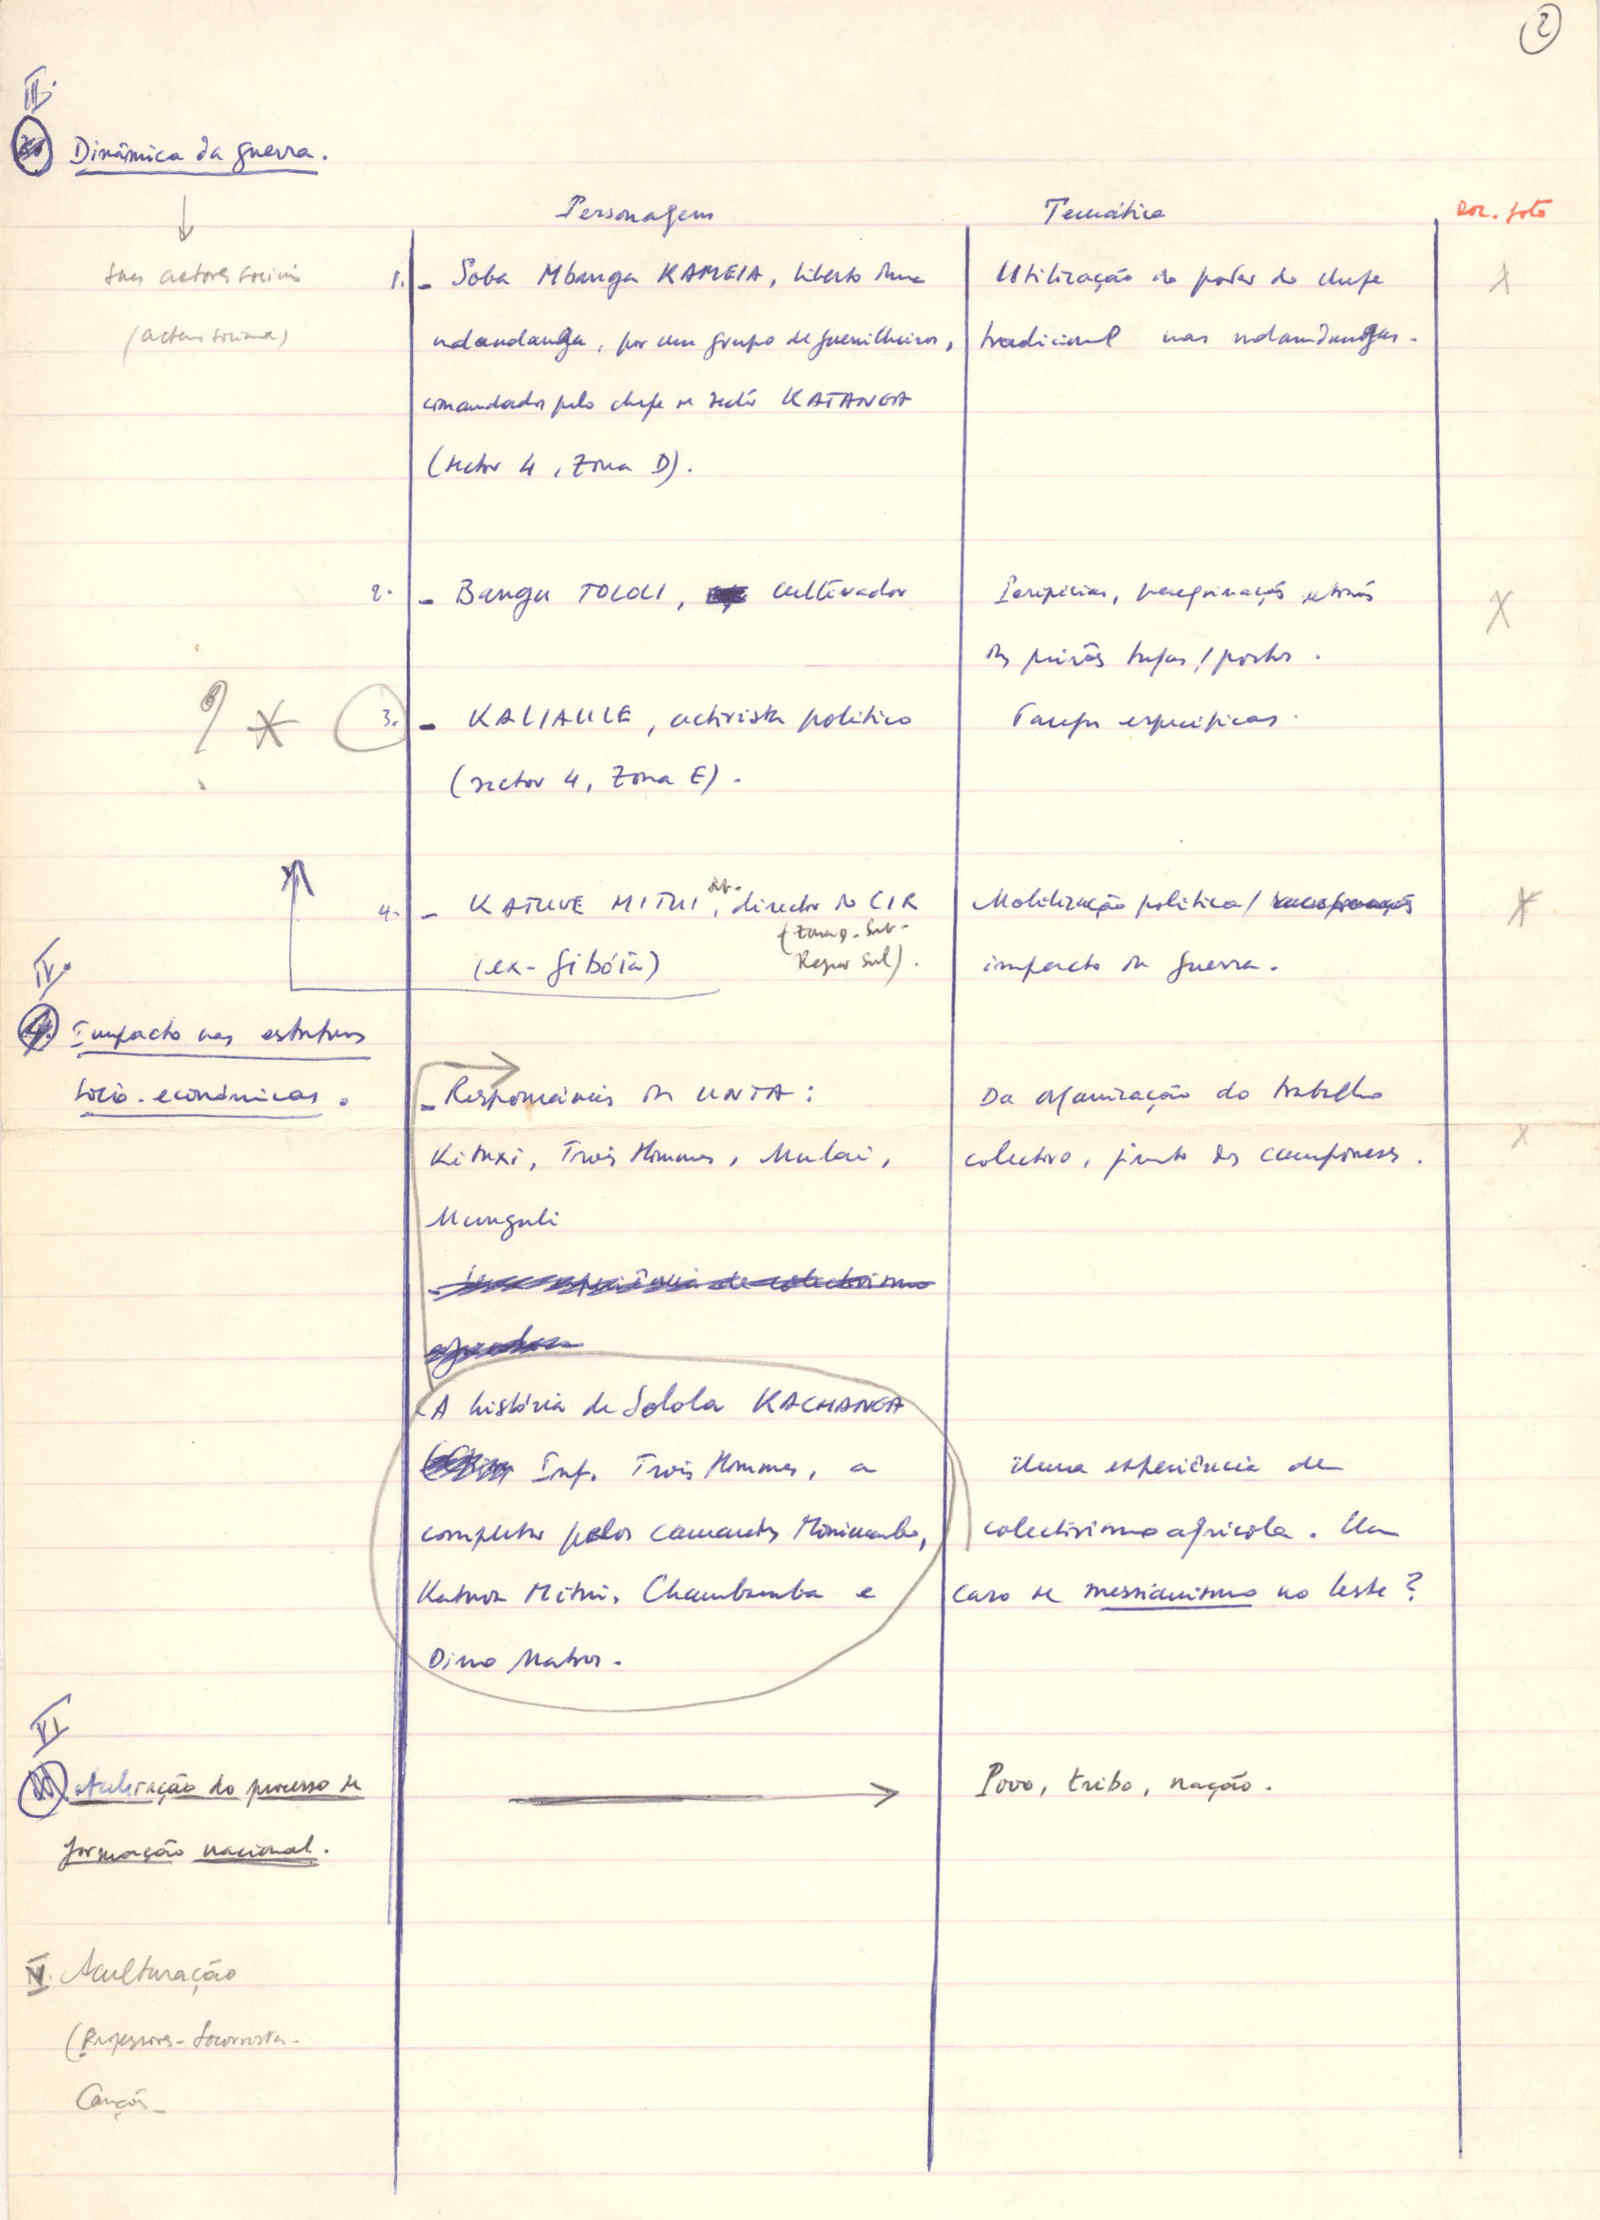 2
III.
Dinâmica da guerra.
Personagem
Temática
doc. foto
seus actores sociais
1. - Soba Mbunga KAMEIA, liberto duma
ndandanga, por um grupo de guerrilheiros,
comandados pelo chefe de sector KATANGA
(sector 4, Zona D).
Utilização do poder do chefe
tradicional nas ndandangas.
X
2. - Bungu TOLOLI, cultivador
Peripécias, peregrinação através
das prisões tugas / postos.
X
? * 3. - KALIAULE, activista político
(sector 4, Zona E).
Tarefas específicas.
4. - KATUVE MITUI, director do CIR
(ex-Gibóia)
(Zona D. Sub-
Região Sul).
Mobilização política /
impacto da guerra.
X
IV.
4. Impacto nas estruturas
sócio-económicas.
- Responsáveis da UNTA:
Kituxi, Trois Hommes, Mulai,
Munguli
Da organização do trabalho
colectivo, junto dos camponeses.
X
A história de Solola KACHANGA
Inf. Trois Hommes, a
completar pelos camaradas
Katuva Mitui, Chambumba e
Dino Matros.
Uma experiência de
colectivismo agrícola. Um
caso de messianismo no leste?
VI
Aceleração do processo de
formação nacional.
Povo, tribo, nação.
V. Aculturação
(Professores - Socorristas -
Canções -